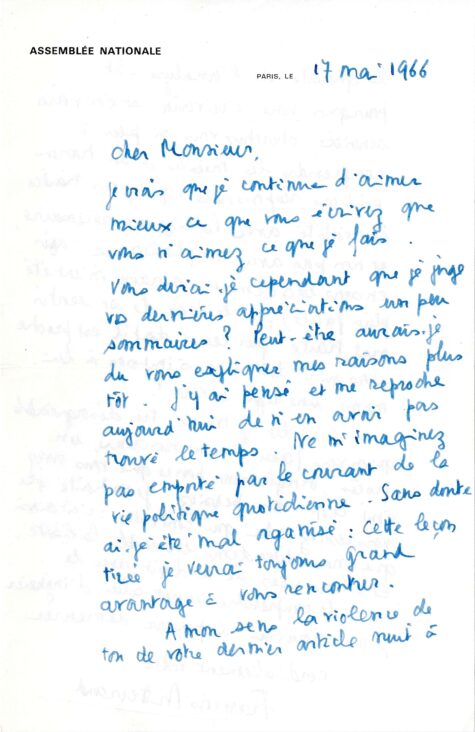 ASSEMBLÉE NATIONALE
PARIS, LE 17 mai 1966
Cher Monsieur,
je crois que je continue d'aimer
mieux ce que vous écrivez que
vous n'aimez ce que je fais.
Vous dirai-je cependant que je juge
vos dernières appréciations un peu
sommaires ? Peut-être aurais-je
du vous expliquer mes raisons plus
tôt. J'y ai pensé et me reproche
aujourd'hui de n'en avoir pas
trouvé le temps. Ne m'imaginez
pas emporté par le courant de la
vie politique quotidienne. Sans doute
ai-je été mal organisé. Cette leçon
tirée je verrai toujours grand
avantage à vous rencontrer.
A mon sens la violence de
ton de votre dernier article nuit à